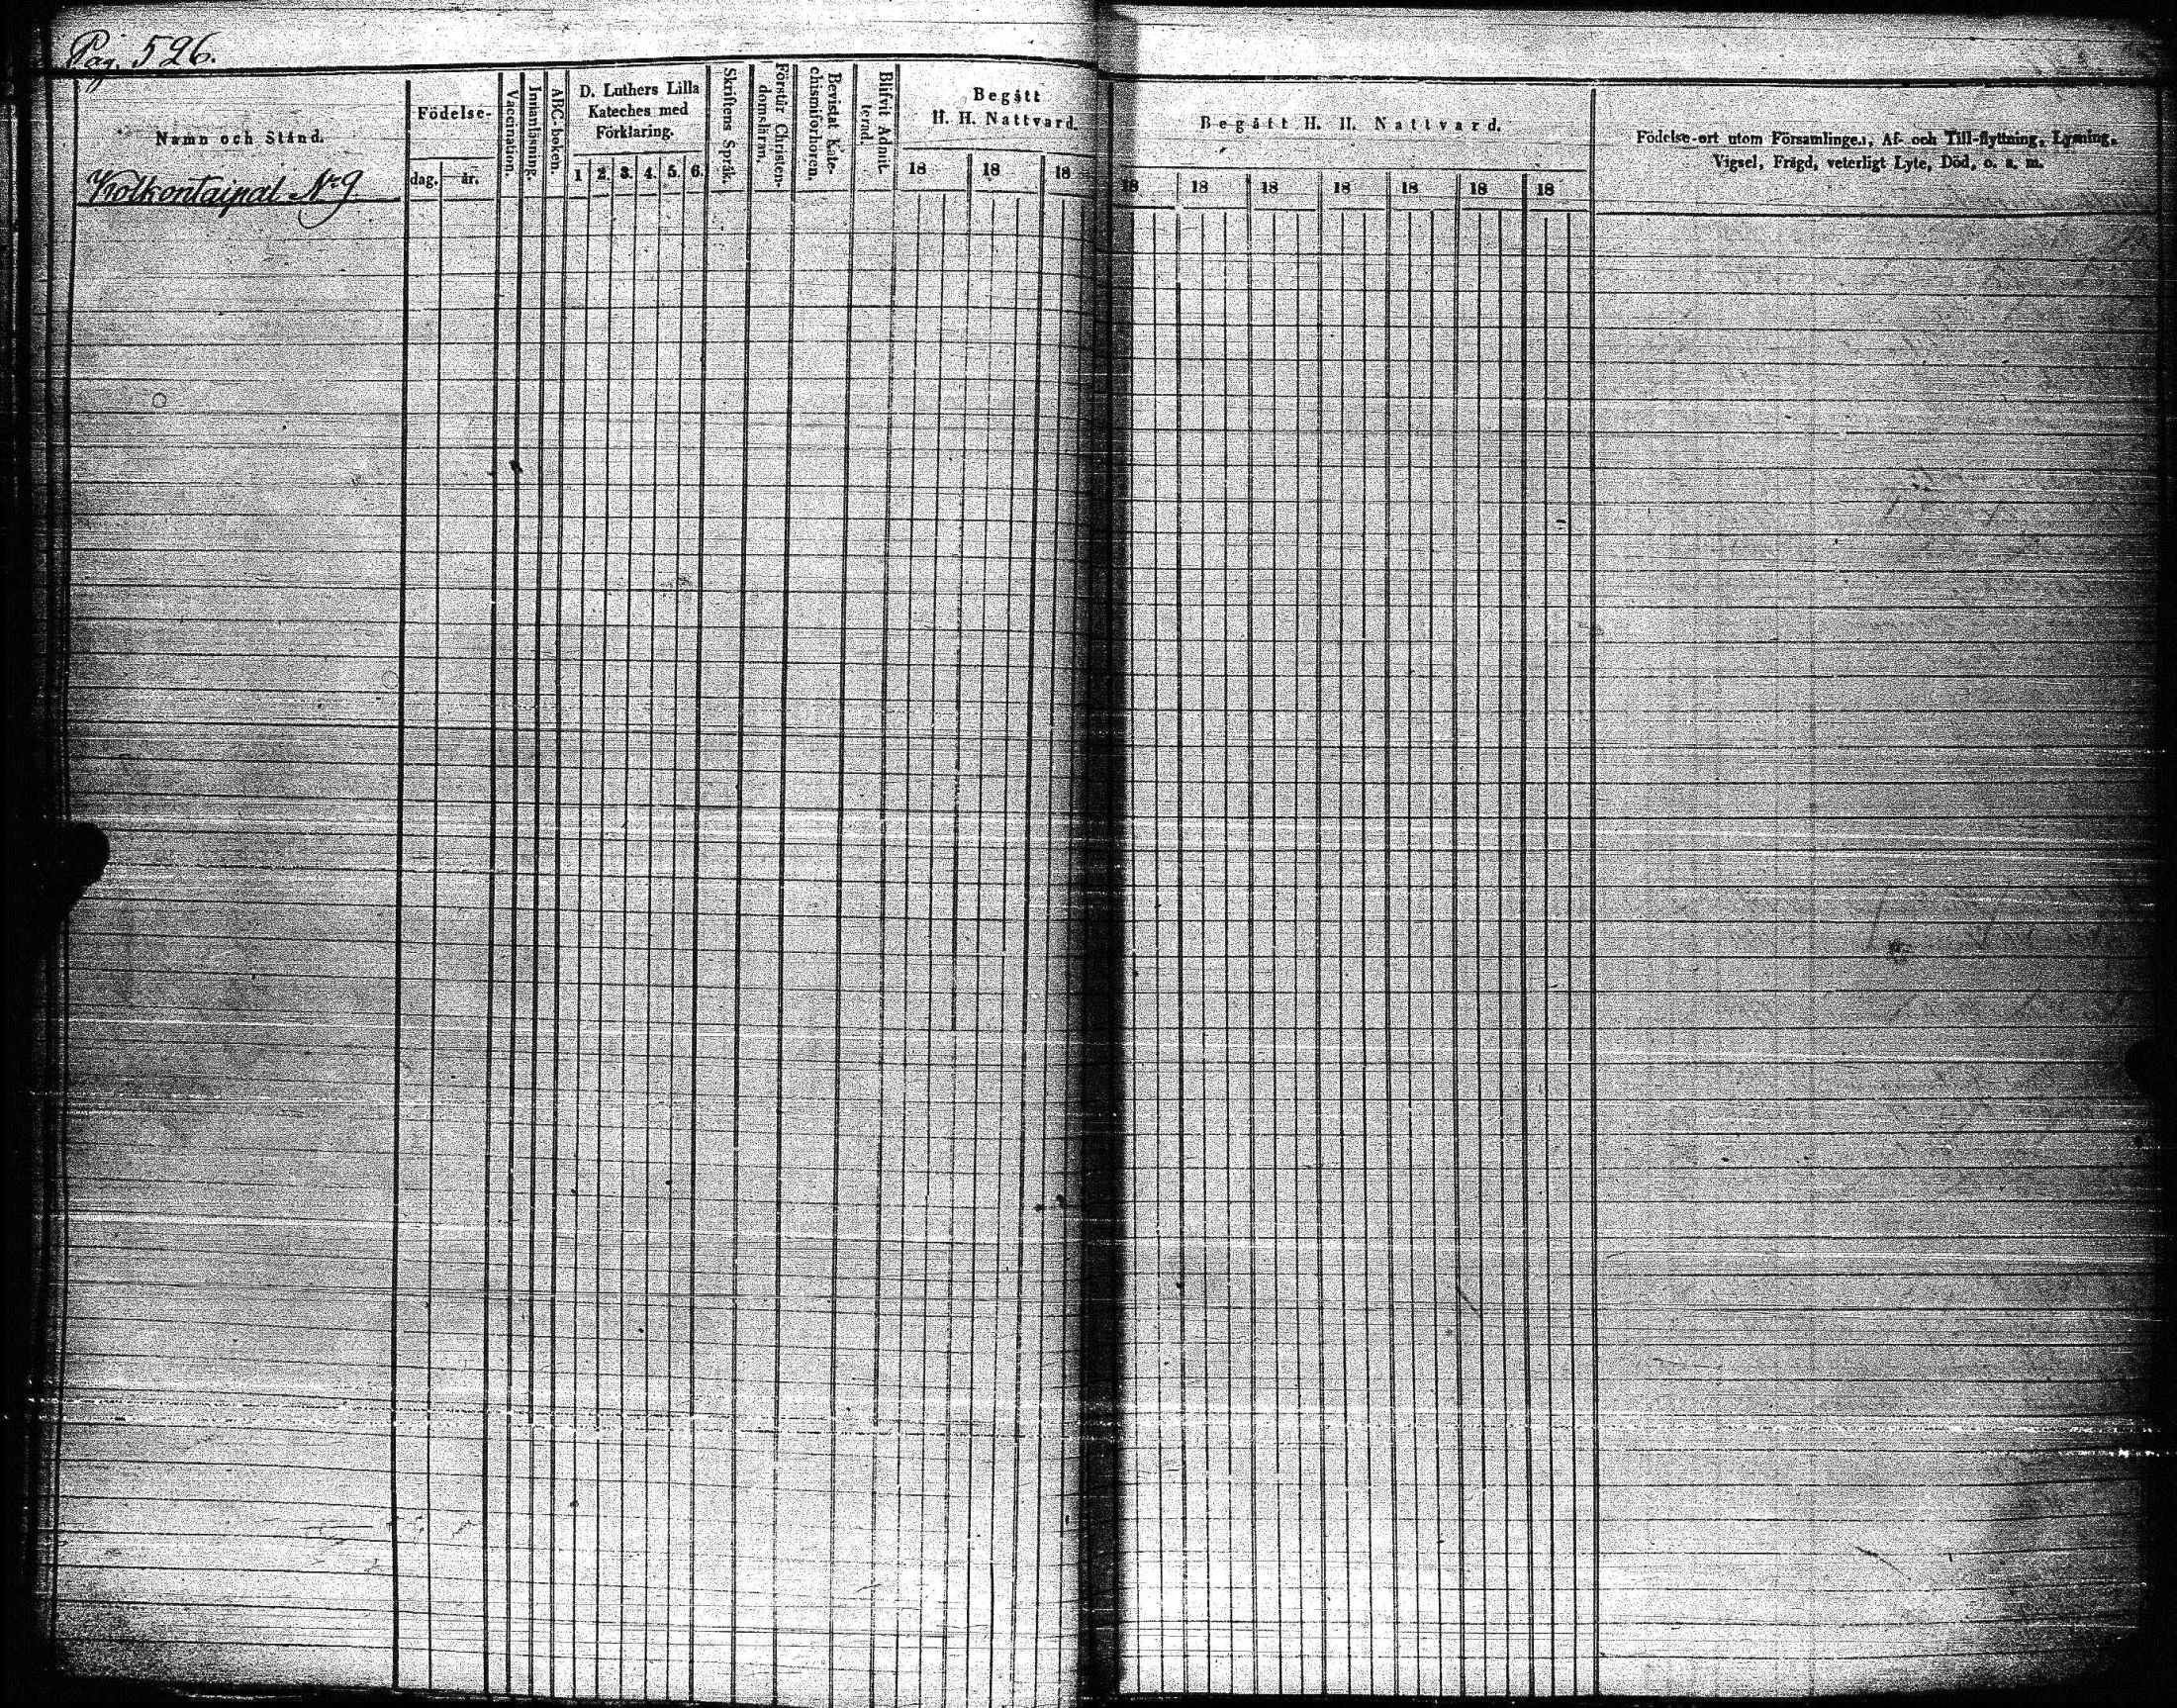 Pag. 526.
Namn och Stånd.
Kolkontaipal No 9
Födelse-
dag.
år.
Vaccination.
Innanläsning.
ABC-boken.
D. Luthers Lilla
Kateches med
Förklaring.
1 2. 3. 4. 5. 6.
Skriftens Språk.
Förstår Christen-
domsläran.
Bevistat Kate-
chismiförhören.
Blifvit Admit-
terad.
Begått
H. H. Nattvard.
18 18 18
Begått H. H. Nattvard.
18 18 18 18 18 18 18
Födelse-ort utom Församlingen, Af- och Till-flyttning, Lysning,
Vigsel, Frägd, veterligt Lyte, Död, o. s. m.